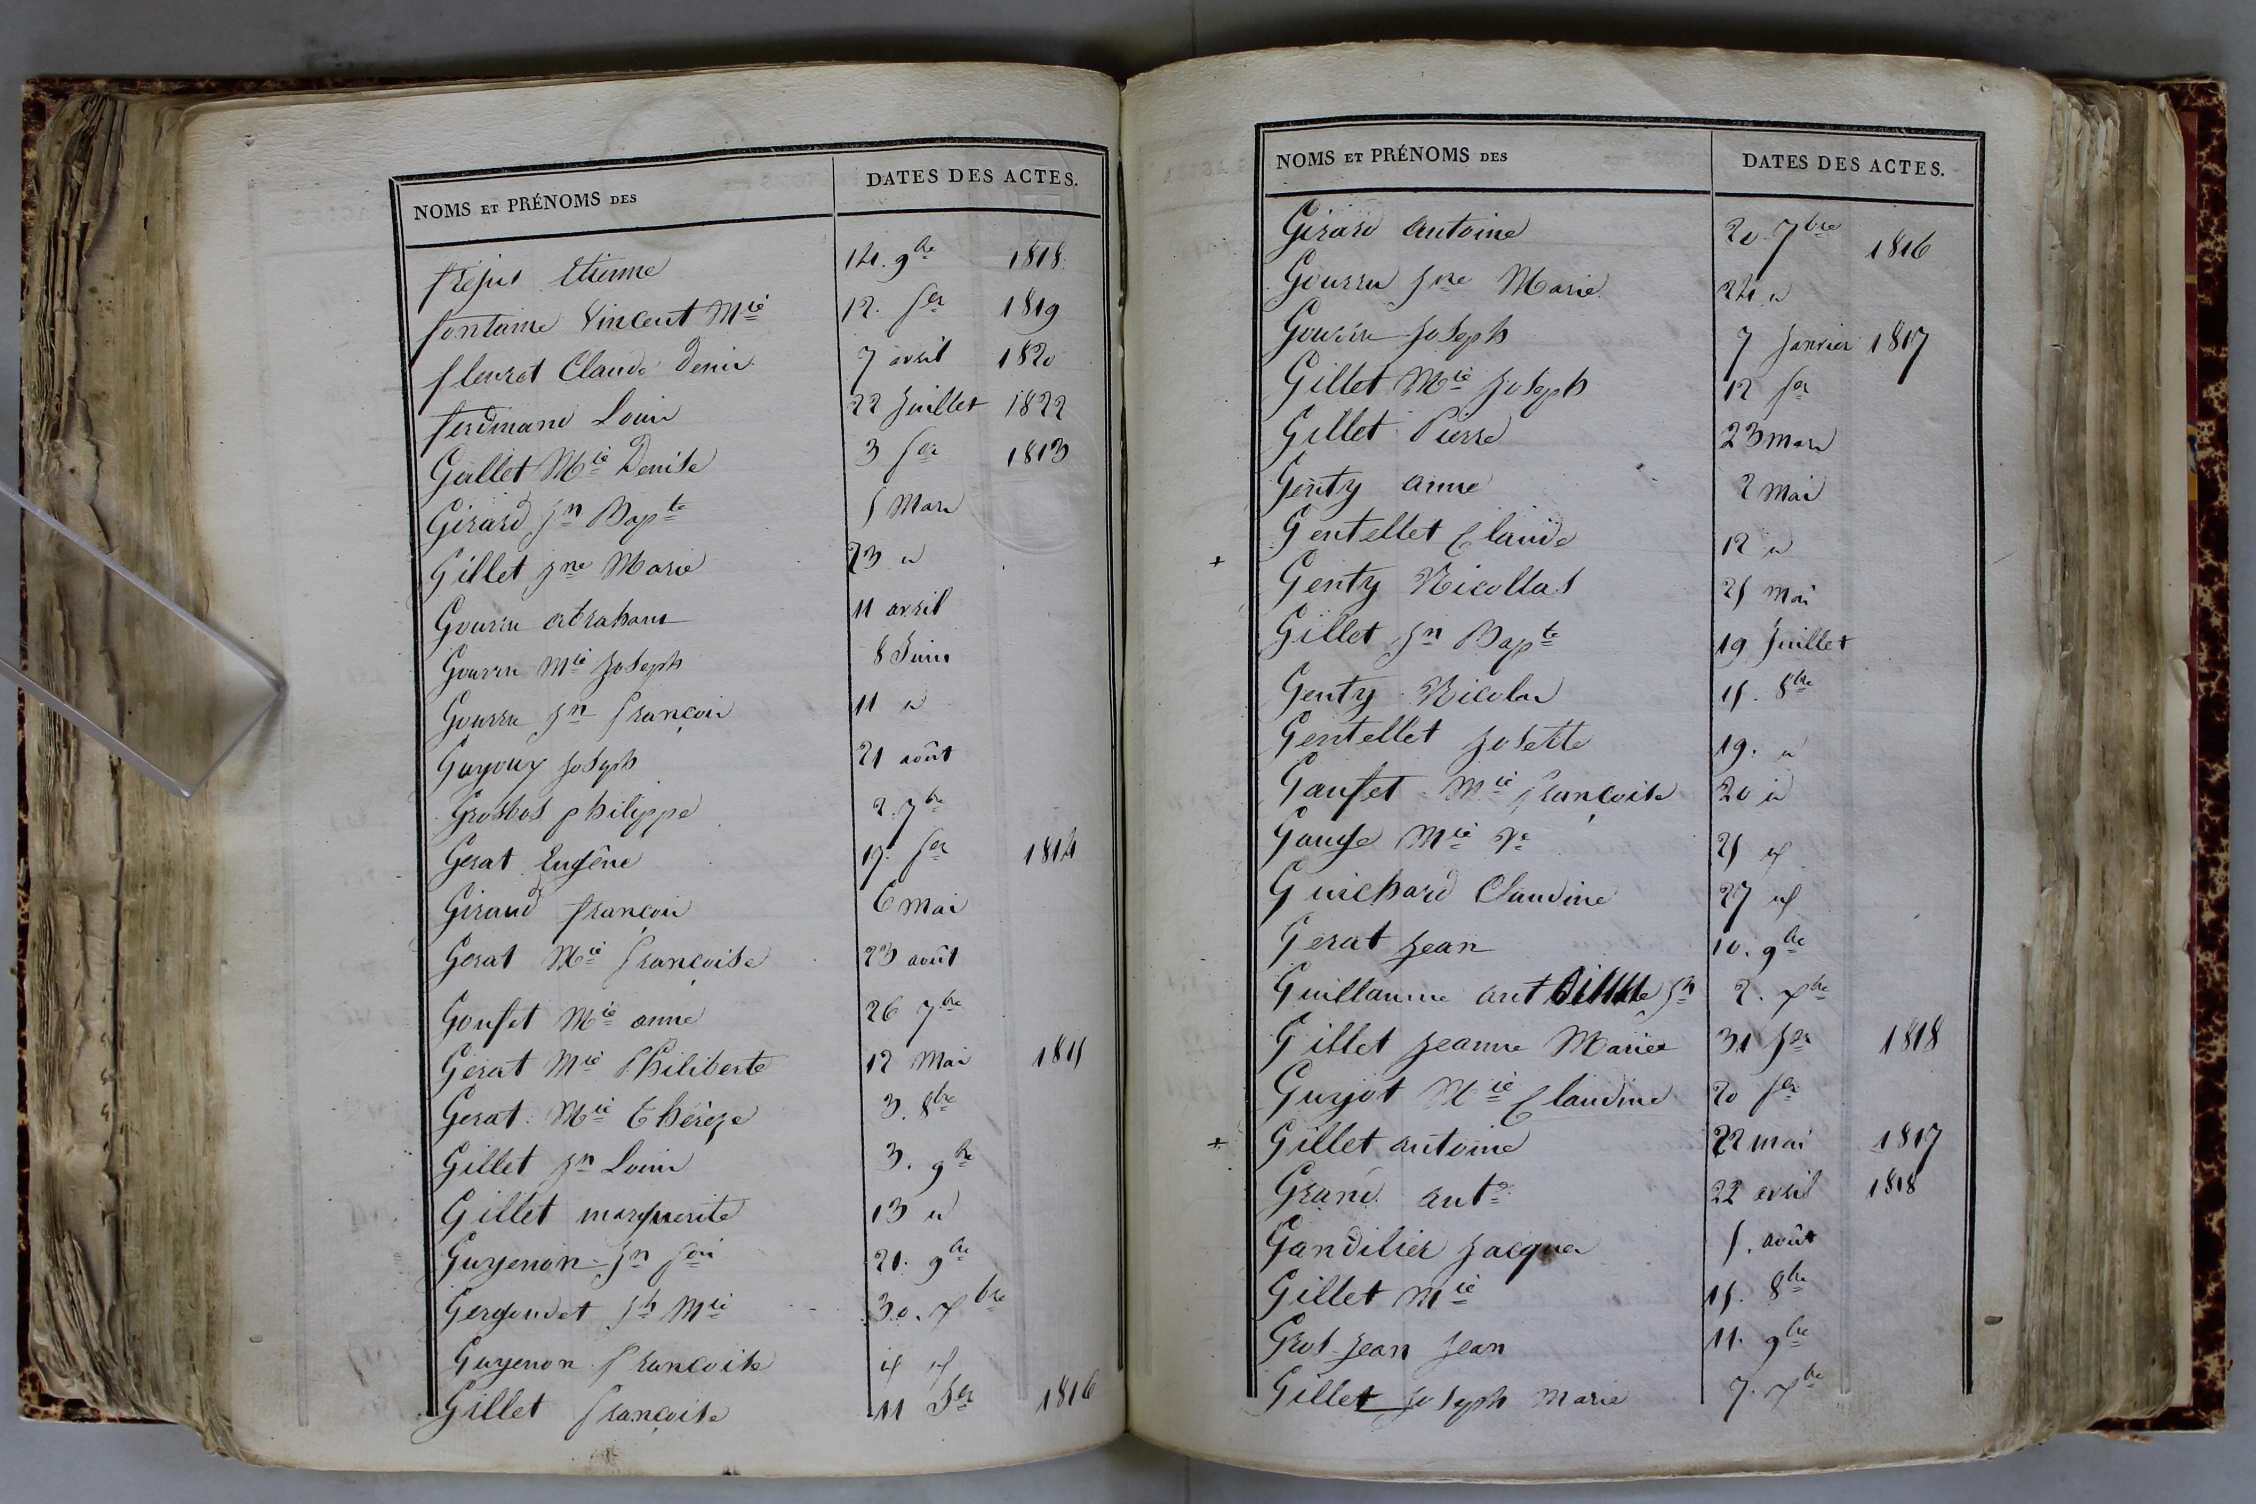 NOMS ET PRÉNOMS DES DATES DES ACTES.
fréjus Etienne 14. 9bre 1818
fontaine Vincent Mie 12. fer 1819
fleuret Claude Denis 7 avril 1820
ferdinand Louis 22 Juillet 1822
Gallet Mie Denise 3 fer 1813
Girard Jn Bapte 5 Mars
Gillet Jne Marie 23 "
Gourru abraham 11 avril
Gourru Mie Joseph 8 Juin
Gourru Jn françois 11 "
Guyoux Joseph 21 août
Grosbos philippe 2. 7bre
Gerat Eugêne 17. fer 1814
Giraud françois 6 Mai
Gerat Mie françoise 23 août
Gouset Mie anne 26 7bre
Gerat Mie Philiberte 12 Mai 1815
Gerat Mie Thérèze 3. 8bre
Gillet Jn Louis 3. 9bre
Gillet marguerite 13 "
Guyenon Jn fois 21. 9bre
Gergondet Jh Mie 30. xbre
Guyenon françoise id id
Gillet françoise 11 Jer 1816
NOMS ET PRÉNOMS DES DATES DES ACTES.
Girard antoine 20. 7bre 1816
Gourru Jne Marie 24 "
Gourru Joseph 7 Janvier 1817
Gillet Mie Joseph 12 fer
Gillet Pierre 23 mars
Genty anne 2 Mai
Gentellet Claude 12 "
+ Genty Nicollas 25 mai
Gillet Jn Bapte 19 Juillet
Genty Nicolas 15. 8bre
Gentellet Josette 19. "
Gauset Mie françoise 20 "
Gauge Mie Ve 25 id
Guichard Claudine 27 id
Gerat Jean 10. 9bre
Guillaume ant Jh 2. xbre
Gillet Jeanne Mariee 31 Jer 1818
Guyot Mie Claudine 20 fer
+ Gillet antoine 22 mai 1817
Grand ante 22 avril 1818
Gandilier Jacques 5. août
Gillet Mie 15. 8bre
Gros-Jean Jean 11. 9bre
Gillet Joseph Marie 7. xbre